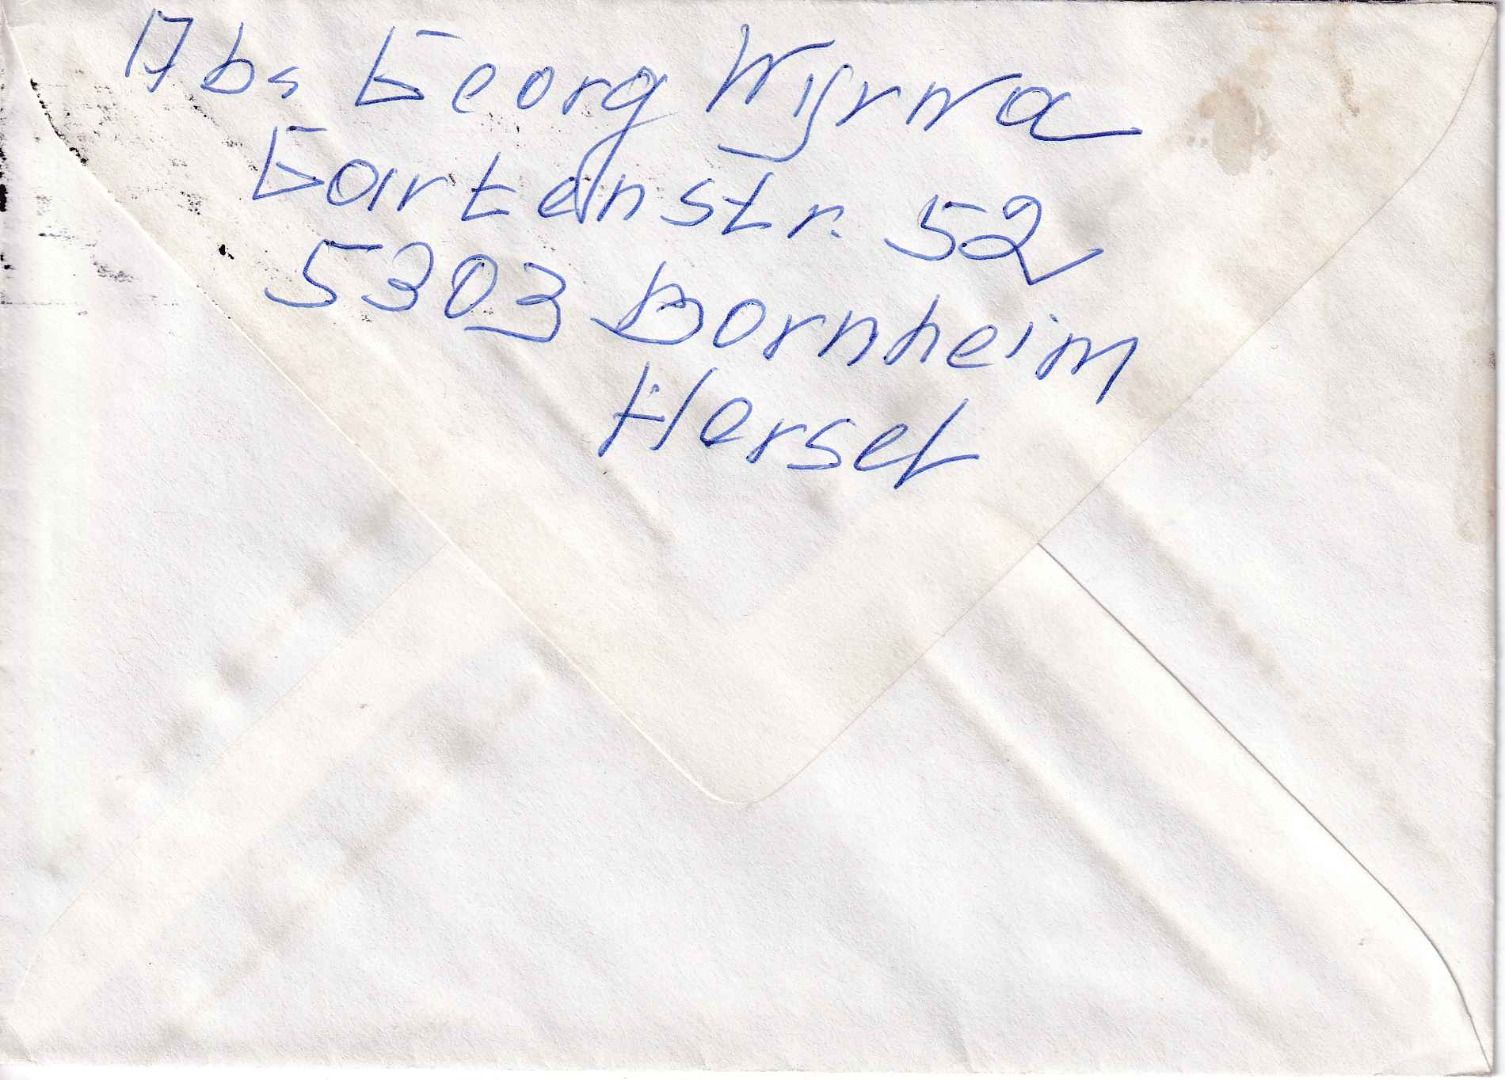 Abs Georg Wyrwa
Gartenstr. 52
5303 Bornheim
Hersel